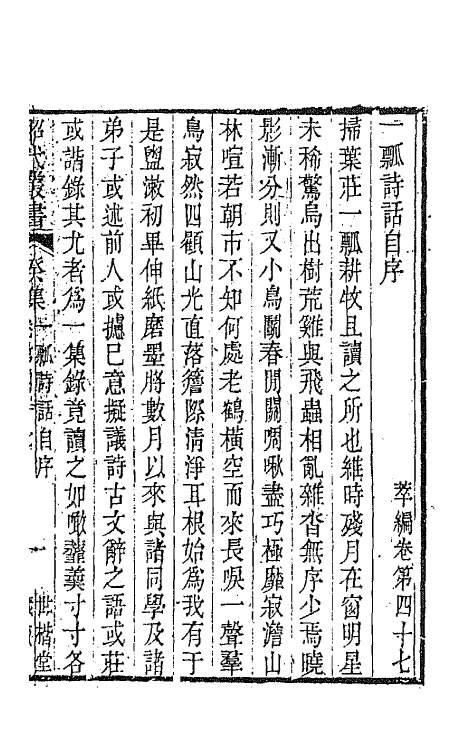 一瓢詩話自序
萃編卷第四十七
掃葉莊一瓢耕牧且讀之所也維時殘月在窗明星
未稀驚烏出樹荒雞與飛蟲相亂雜沓無序少焉曉
影漸分則又小鳥鬬春閒關啁啾盡巧極靡寂澹山
林喧若朝市不知何處老鶴橫空而來長唳一聲羣
鳥寂然四顧山光直落簷際清淨耳根始為我有于
是盥漱初畢伸紙磨墨將數月以來與諸同學及諸
弟子或述前人或攄已意擬議詩古文辭之語或莊
或諧錄其尤者為一集錄竟讀之如噉虀羹寸寸各
昭代叢書 癸集 一瓢詩話自序 一 世楷堂